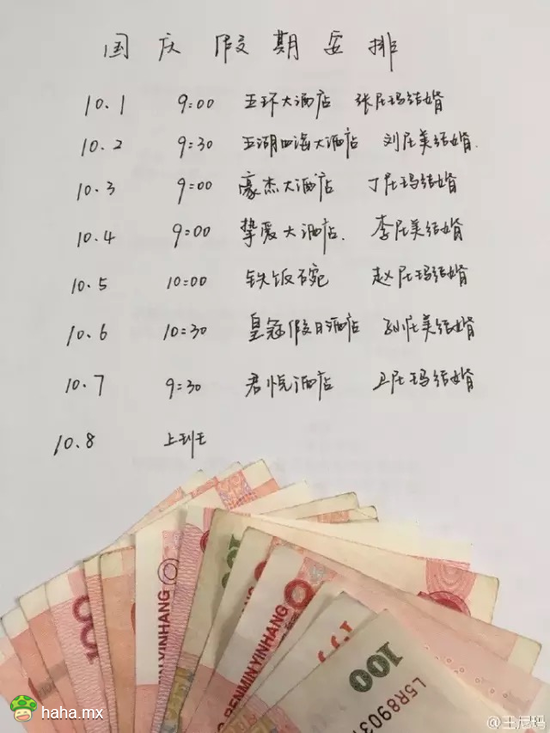 国庆假期安排
10.1 9:00 五环大酒店 张尼玛结婚
10.2 9:30 五湖四海大酒店 刘尼美结婚.
10.3 9:00 豪杰大酒店 丁尼玛结婚
10.4 9:00 挚爱大酒店. 李尼美结婚
10.5 10:00 铁饭碗 赵尼玛结婚
10.6 10:30 皇冠假日酒店 孙尼美结婚
10.7 9:30 君悦酒店 卫尼玛结婚
10.8 上班
100
BENMIN YINHANG
100
L5R8903
MIN YINHANG
haha.mx
@王尼玛